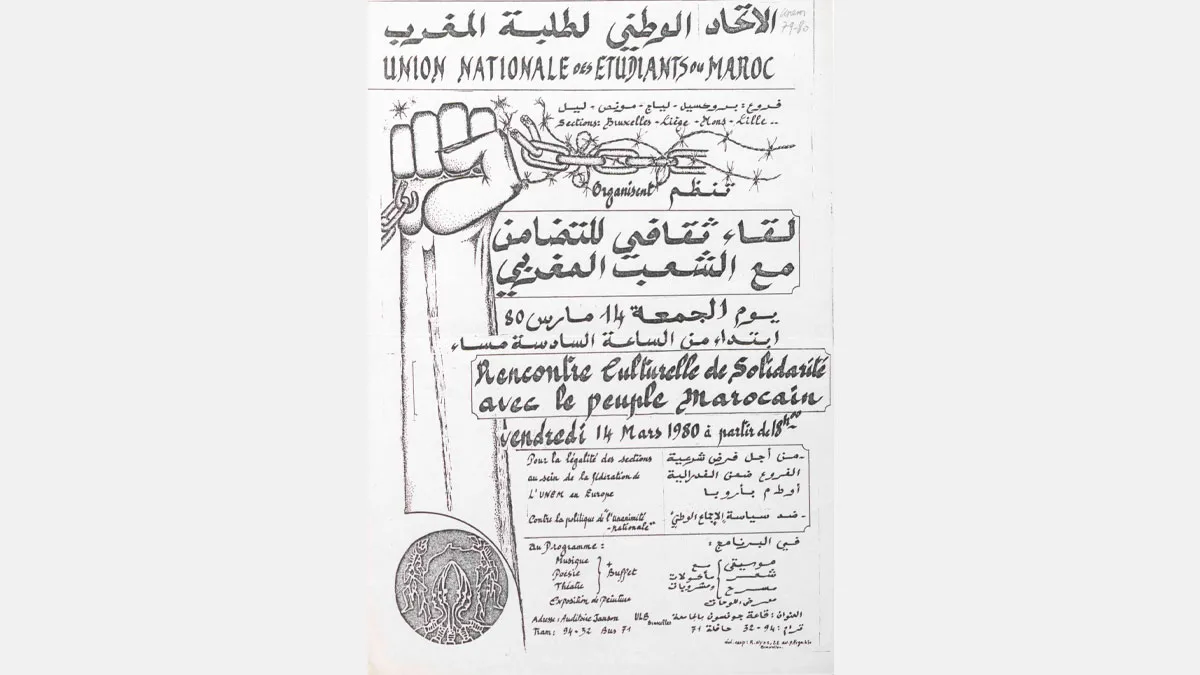 الاتحاد الوطني لطلبة المغرب
UNION NATIONALE DES ETUDIANTS DU MAROC
79-80
فروع: بروكسيل - لياج - مونص - ليل
Sections: Bruxelles - Liège - Mons - Lille ..
Organisent تنظم
لقاء ثقافي للتضامن
مع الشعب المغربي
يوم الجمعة 14 مارس 80
ابتداء من الساعة السادسة مساء
Rencontre Culturelle de Solidarité
avec le peuple Marocain
vendredi 14 Mars 1980 à partir de 18h00
Pour la légalité des sections
au sein de la fédération de
L'UNEM en Europe
Contre la politique de "l'unanimité
-nationale"
-من أجل فرض شرعية
الفروع ضمن الفدرالية
أوطم بأروبا
-ضد سياسة "الإجماع الوطني"
Au Programme:
Musique
Poesie
Théatre
+ Buffet
Exposition de Peinture
في البرنامج:
موسيقى
شعر
مسرح
مع
مأكولات
ومشروبات
معرض لوحات
Adresse: Auditoire Janson ULB Bruxelles
Tram: 94-32 Bus 71
العنوان: قاعة جونسون بالجامعة
ترام: 94-32 حافلة 71